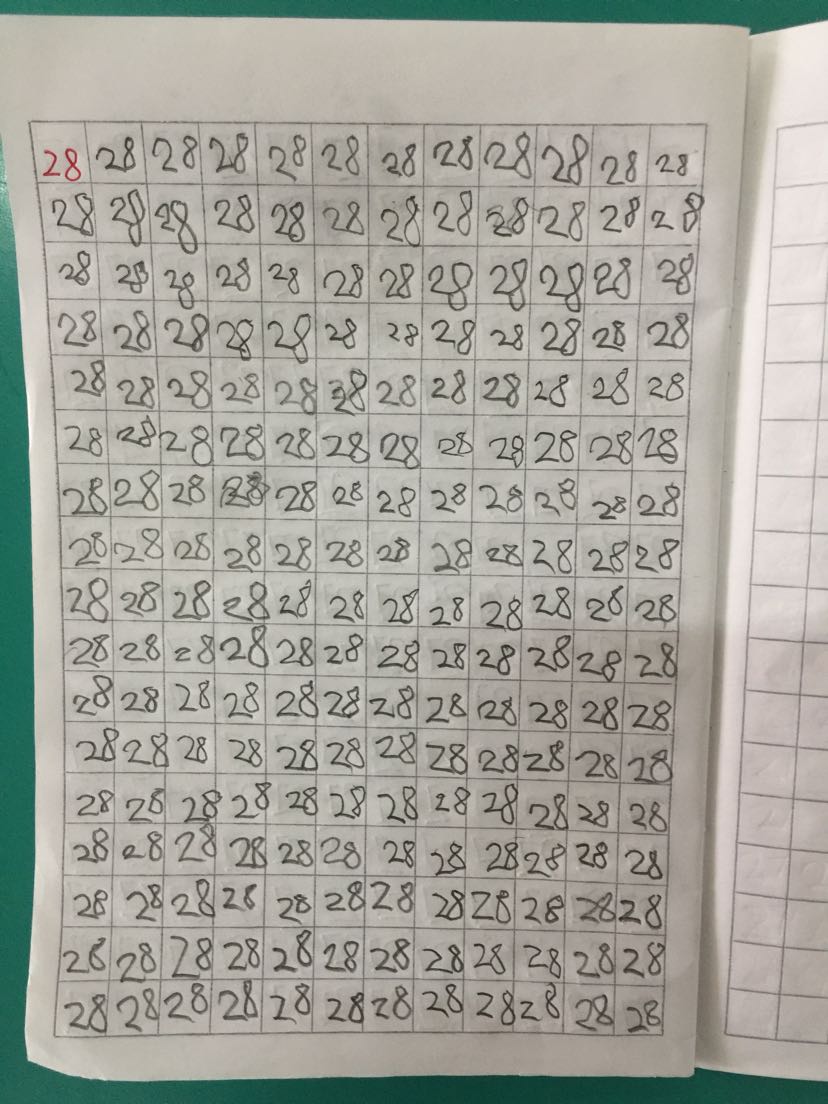 28 28 28 28 28 28 28 28 28 28 28 28
28 28 28 28 28 28 28 28 28 28 28 28
28 28 28 28 28 28 28 28 28 28 28 28
28 28 28 28 28 28 28 28 28 28 28 28
28 28 28 28 28 28 28 28 28 28 28 28
28 28 28 28 28 28 28 28 28 28 28 28
28 28 28 28 28 28 28 28 28 28 28 28
28 28 28 28 28 28 28 28 28 28 28 28
28 28 28 28 28 28 28 28 28 28 28 28
28 28 28 28 28 28 28 28 28 28 28 28
28 28 28 28 28 28 28 28 28 28 28 28
28 28 28 28 28 28 28 28 28 28 28 28
28 28 28 28 28 28 28 28 28 28 28 28
28 28 28 28 28 28 28 28 28 28 28 28
28 28 28 28 28 28 28 28 28 28 28 28
28 28 28 28 28 28 28 28 28 28 28 28
28 28 28 28 28 28 28 28 28 28 28 28